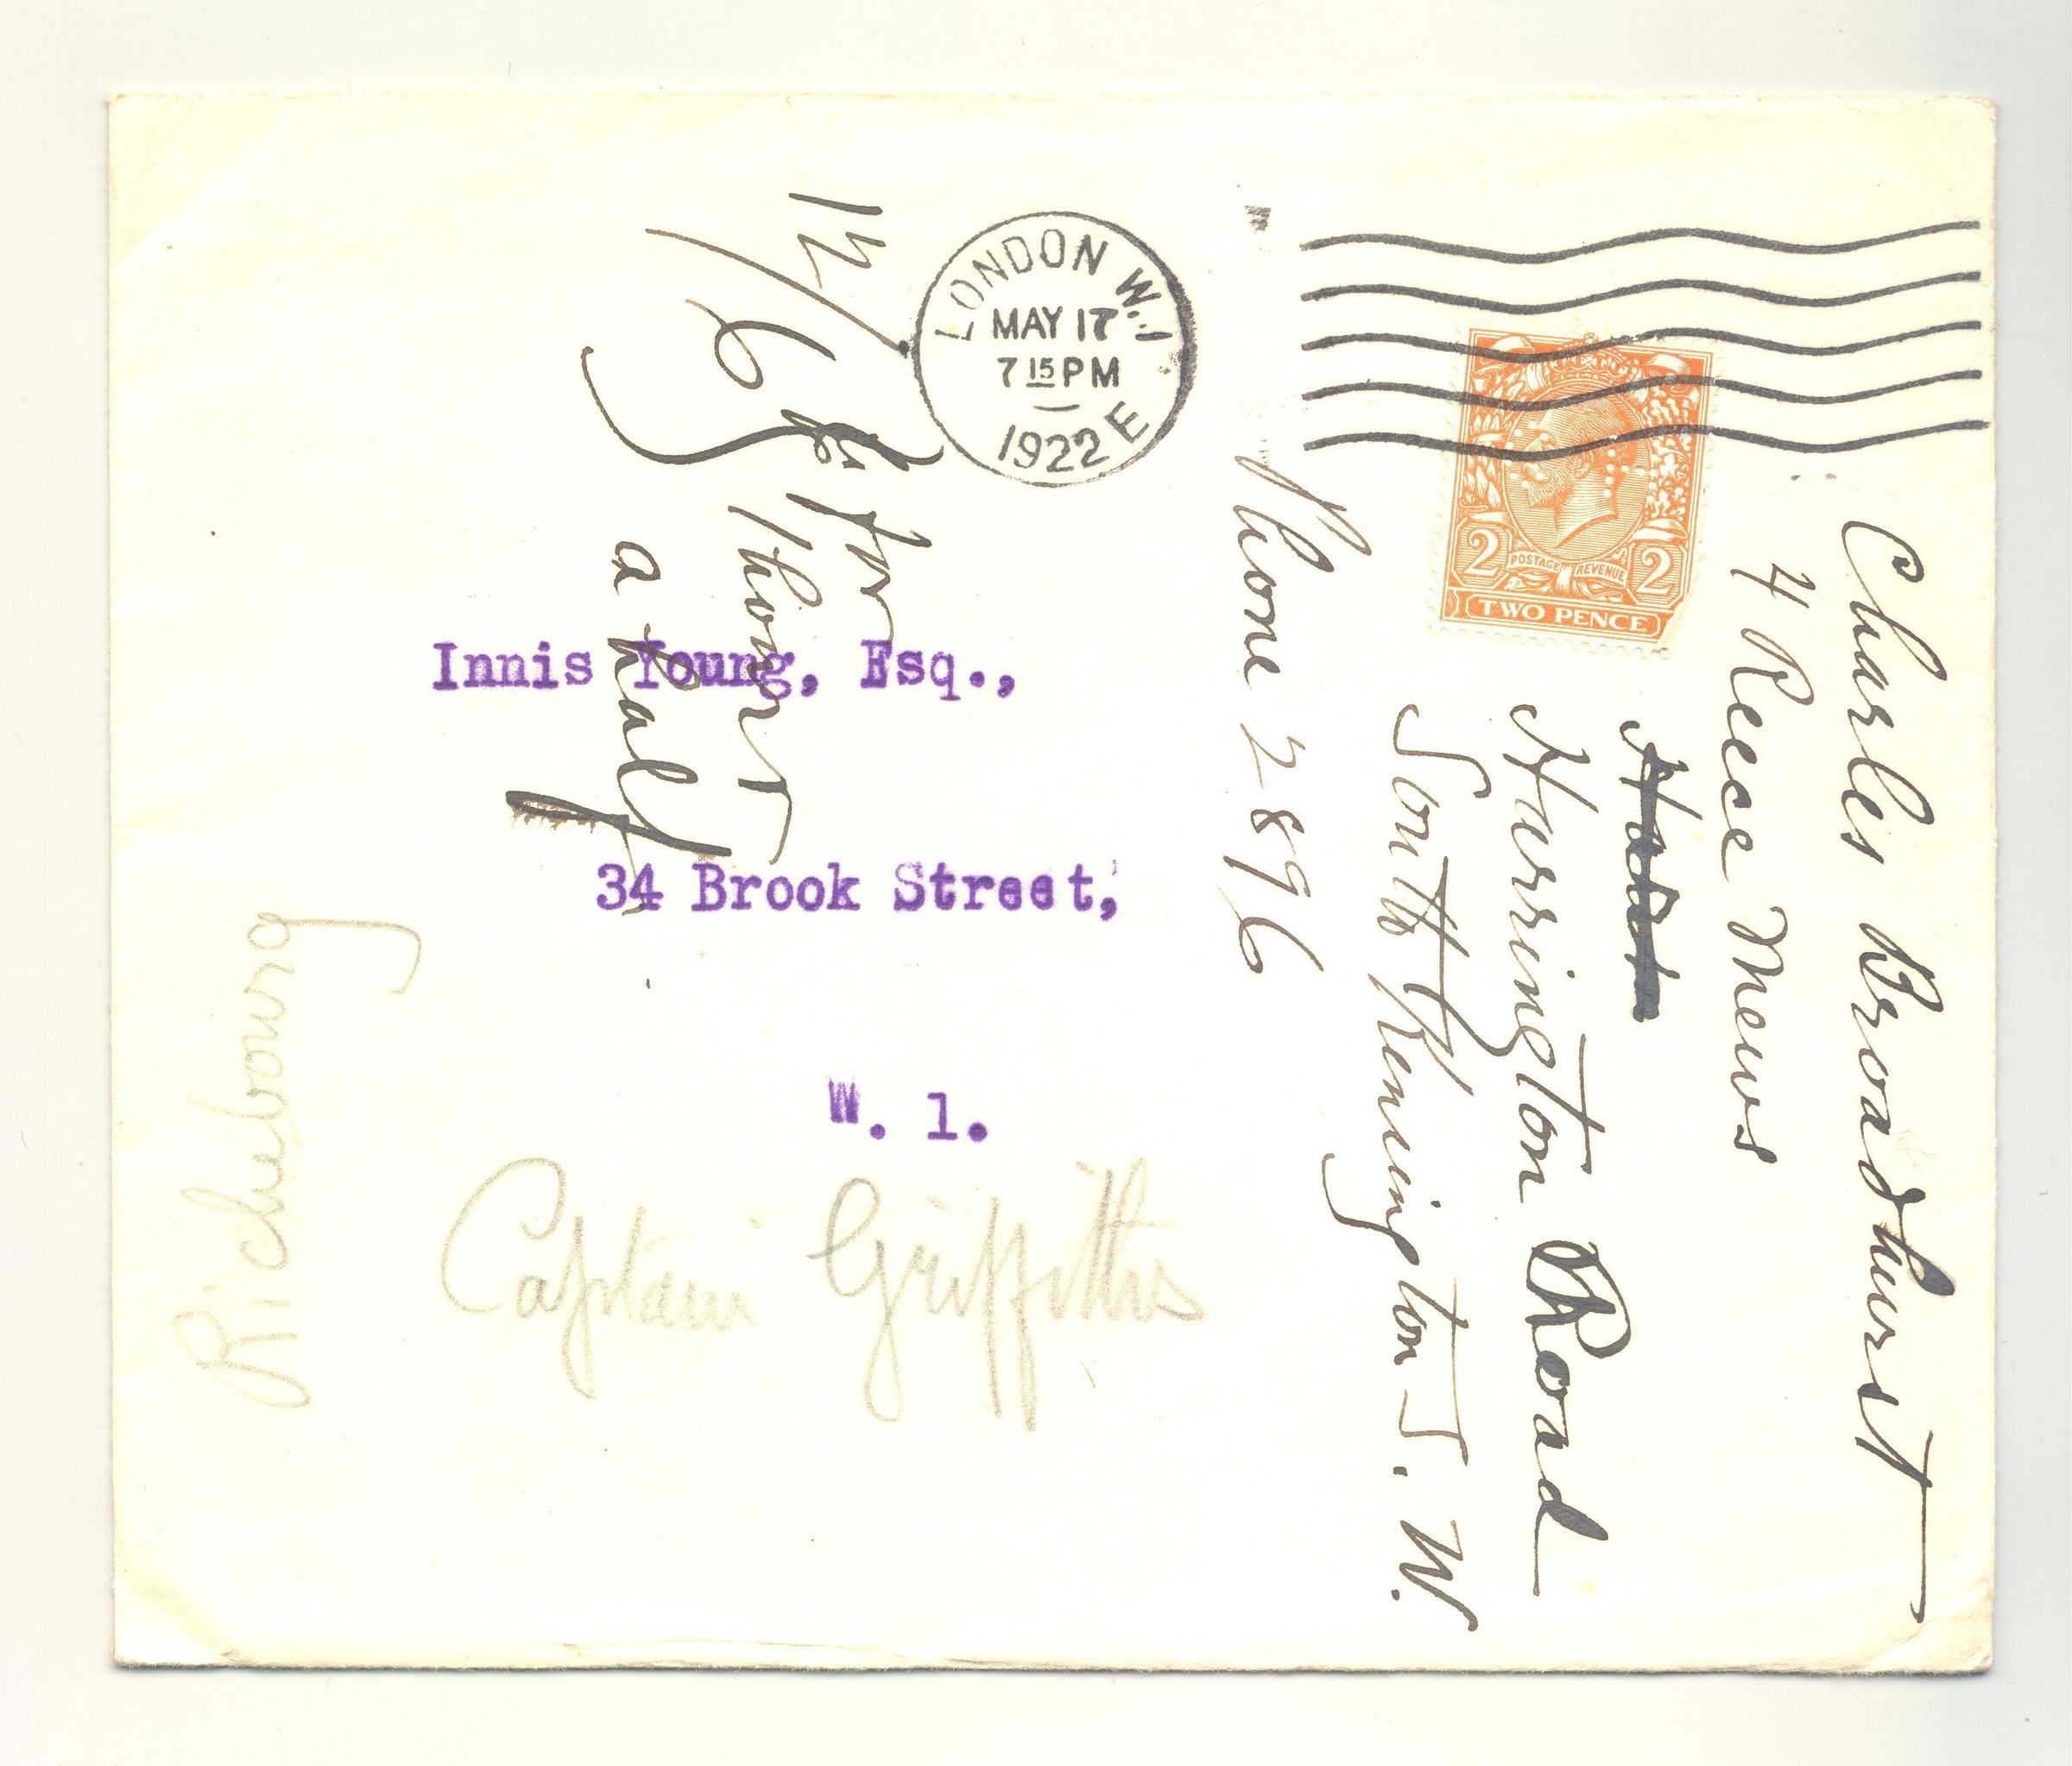 LONDON W.1
MAY 17
7 15 PM
1922 E
2 2
POSTAGE REVENUE
TWO PENCE
Innis Young, Esq.,
34 Brook Street,
W. 1.
Captain Griffiths
Richebourg
Charles Broadhurst
4 Reece Mews
Harrington Road
South Kensington S. W.
Phone 2896
12/6
for
1 hour
a half